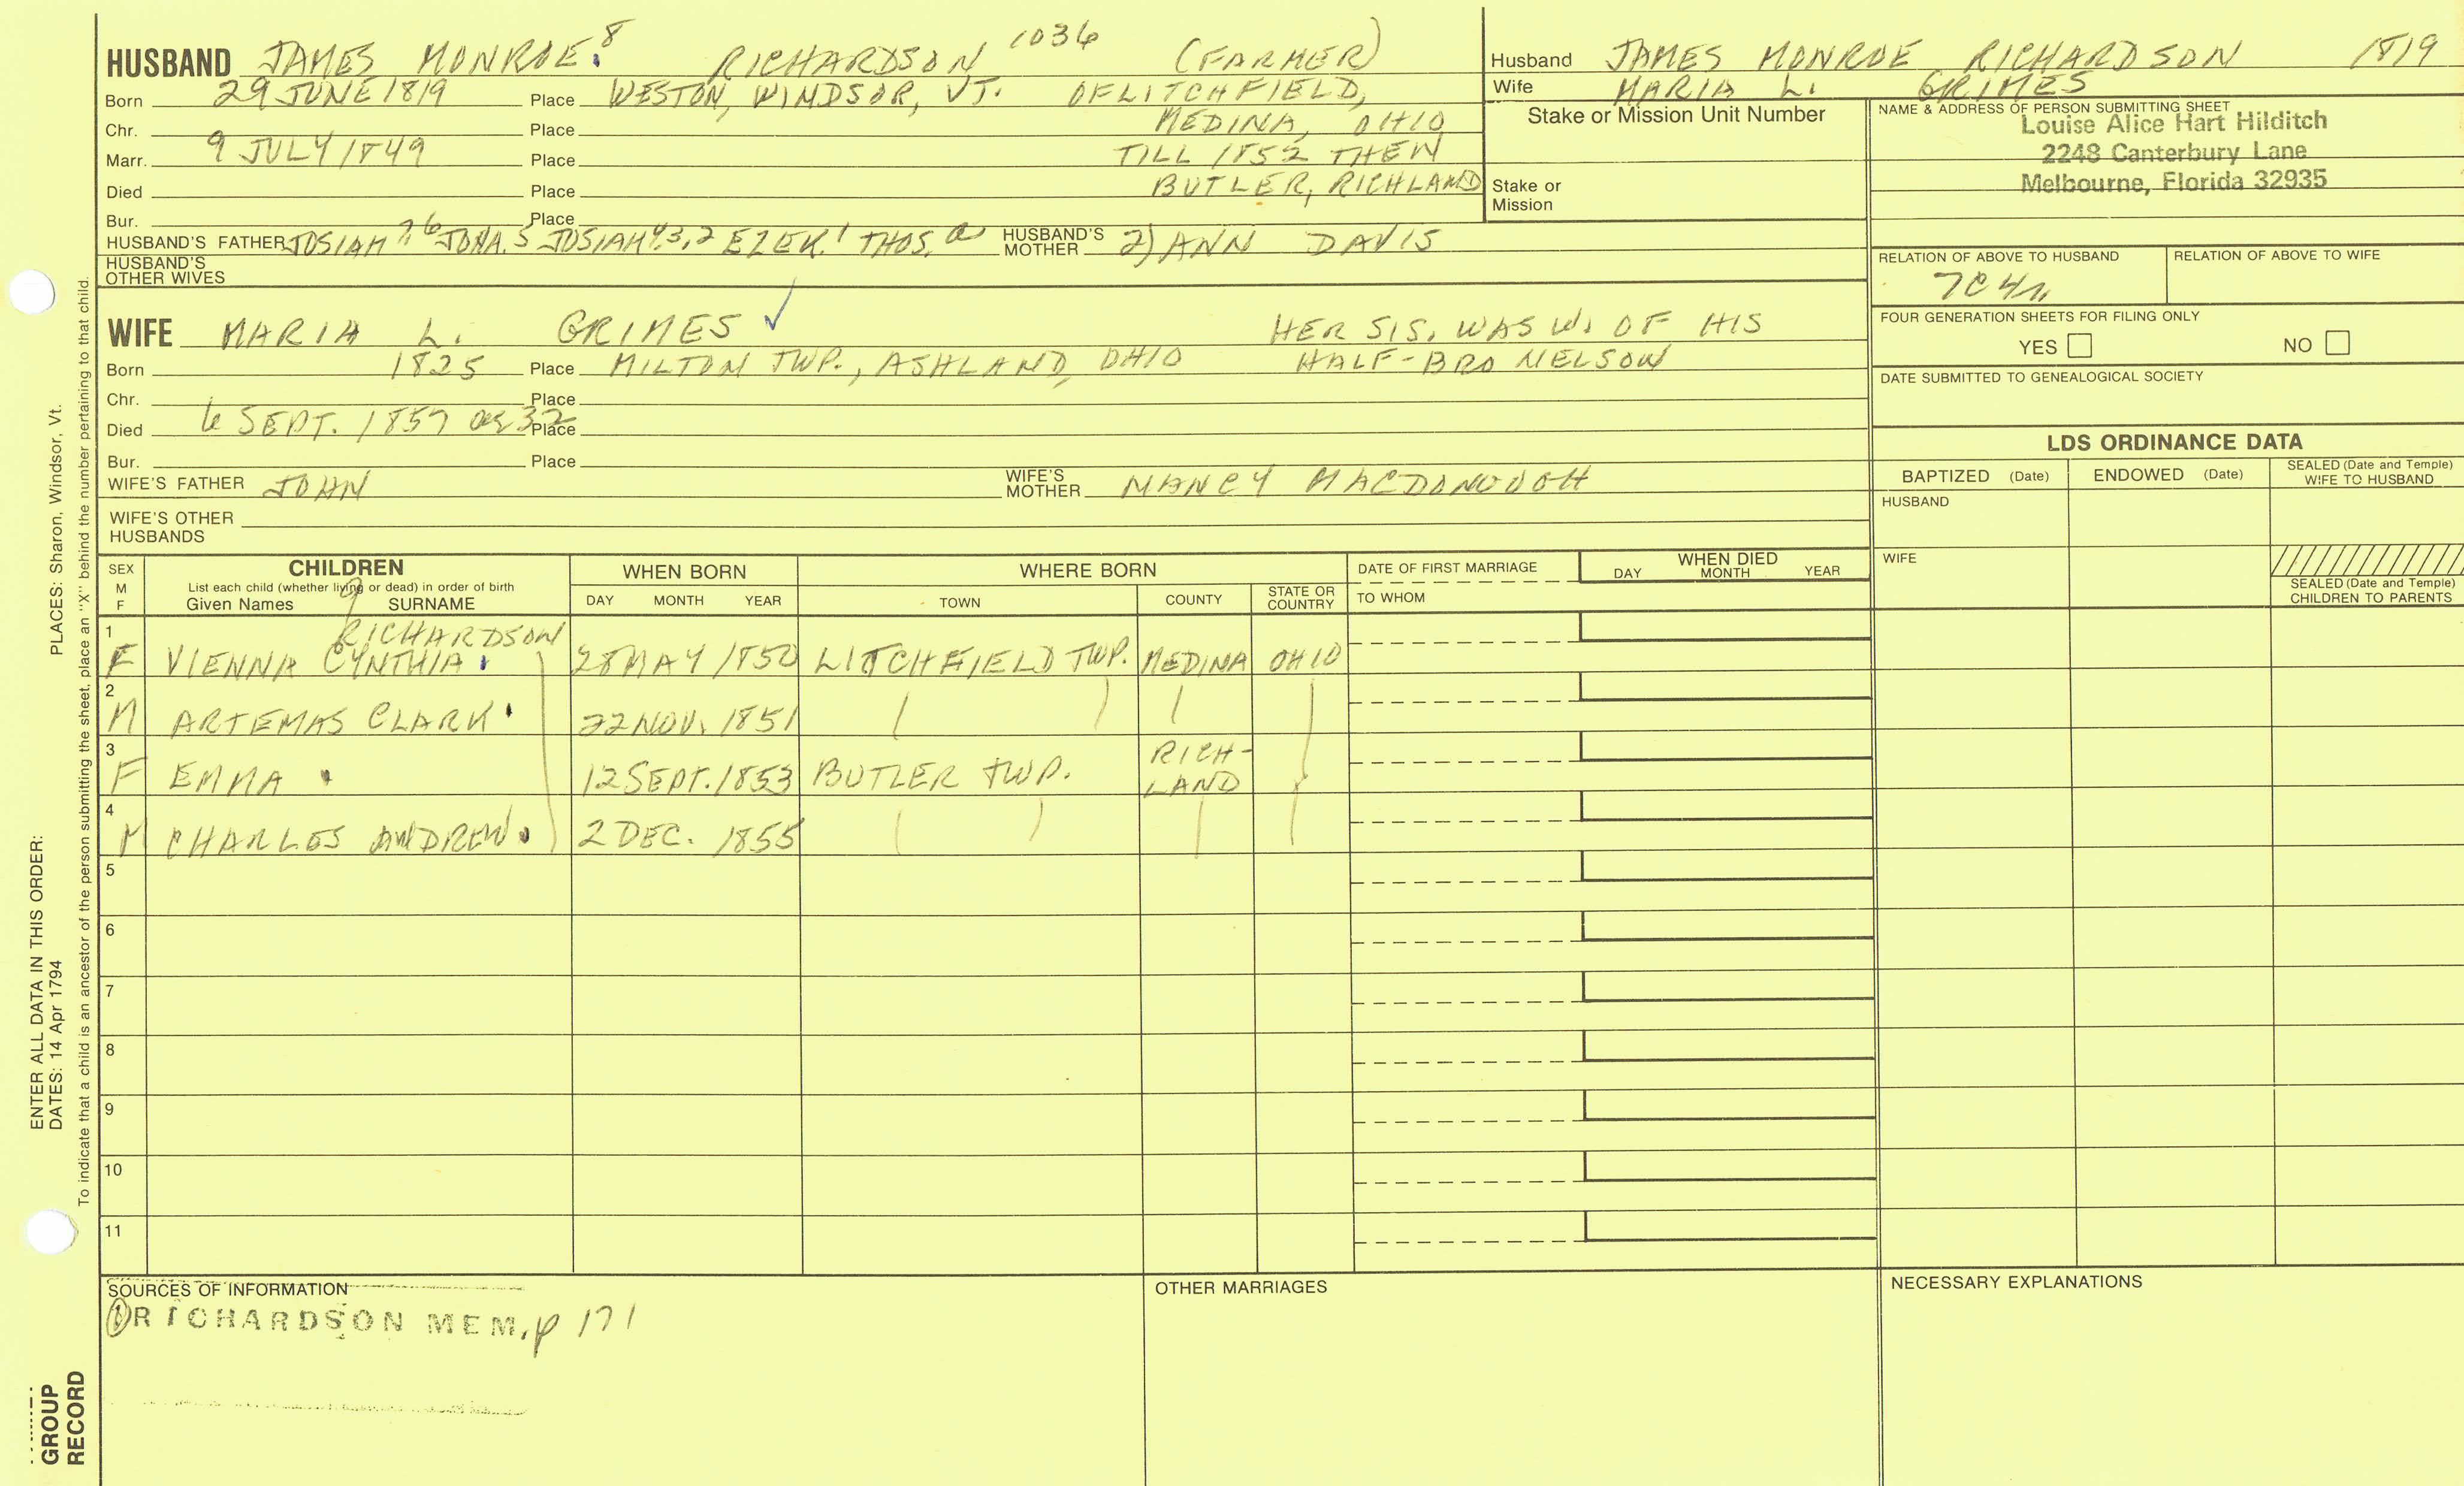 HUSBAND JAMES MONROE.8 RICHARDSON 1036 (FARMER)
Born 29 JUNE 1819 Place WESTON, WINDSOR, VT. OF LITCHFIELD,
Chr. Place MEDINA, OHIO
Marr. 9 JULY 1849 Place TILL 1852 THEN
Died Place BUTLER, RICHLAND
Bur. Place
HUSBAND'S FATHER JOSIAH 7,6 JONA.5 JOSIAH 4,3,2 EZEK.1 THOS.a HUSBAND'S MOTHER 2) ANN DAVIS
HUSBAND'S OTHER WIVES
WIFE MARIA L. GRIMES ✓ HER SIS. WAS W. OF HIS
Born 1825 Place MILTON TWP., ASHLAND, OHIO HALF-BRO NELSON
Chr. Place
Died 6 SEPT. 1857 ae 32 Place
Bur. Place
WIFE'S FATHER JOHN WIFE'S MOTHER NANCY MACDONOUGH
WIFE'S OTHER HUSBANDS
Husband JAMES MONROE RICHARDSON 1819
Wife MARIA L. GRIMES
Stake or Mission Unit Number
Stake or Mission
NAME & ADDRESS OF PERSON SUBMITTING SHEET
Louise Alice Hart Hilditch
2248 Canterbury Lane
Melbourne, Florida 32935
RELATION OF ABOVE TO HUSBAND RELATION OF ABOVE TO WIFE
7C4r
FOUR GENERATION SHEETS FOR FILING ONLY
YES NO
DATE SUBMITTED TO GENEALOGICAL SOCIETY
LDS ORDINANCE DATA
BAPTIZED (Date) ENDOWED (Date) SEALED (Date and Temple) WIFE TO HUSBAND
HUSBAND
WIFE
SEALED (Date and Temple) CHILDREN TO PARENTS
SEX M F
CHILDREN
List each child (whether living or dead) in order of birth
Given Names SURNAME
9
WHEN BORN
DAY MONTH YEAR
WHERE BORN
TOWN COUNTY STATE OR COUNTRY
DATE OF FIRST MARRIAGE
TO WHOM
WHEN DIED
DAY MONTH YEAR
RICHARDSON
1 F VIENNA CYNTHIA. 28 MAY 1850 LITCHFIELD TWP. MEDINA OHIO
2 M ARTEMAS CLARK. 22 NOV. 1851
3 F EMMA . 12 SEPT. 1853 BUTLER TWP. RICH-LAND
4 M CHARLES ANDREW. 2 DEC. 1855
5
6
7
8
9
10
11
SOURCES OF INFORMATION
① RICHARDSON MEM. p 171
OTHER MARRIAGES
NECESSARY EXPLANATIONS
PLACES: Sharon, Windsor, Vt.
To indicate that a child is an ancestor of the person submitting the sheet, place an "X" behind the number pertaining to that child.
ENTER ALL DATA IN THIS ORDER:
DATES: 14 Apr 1794
GROUP
RECORD